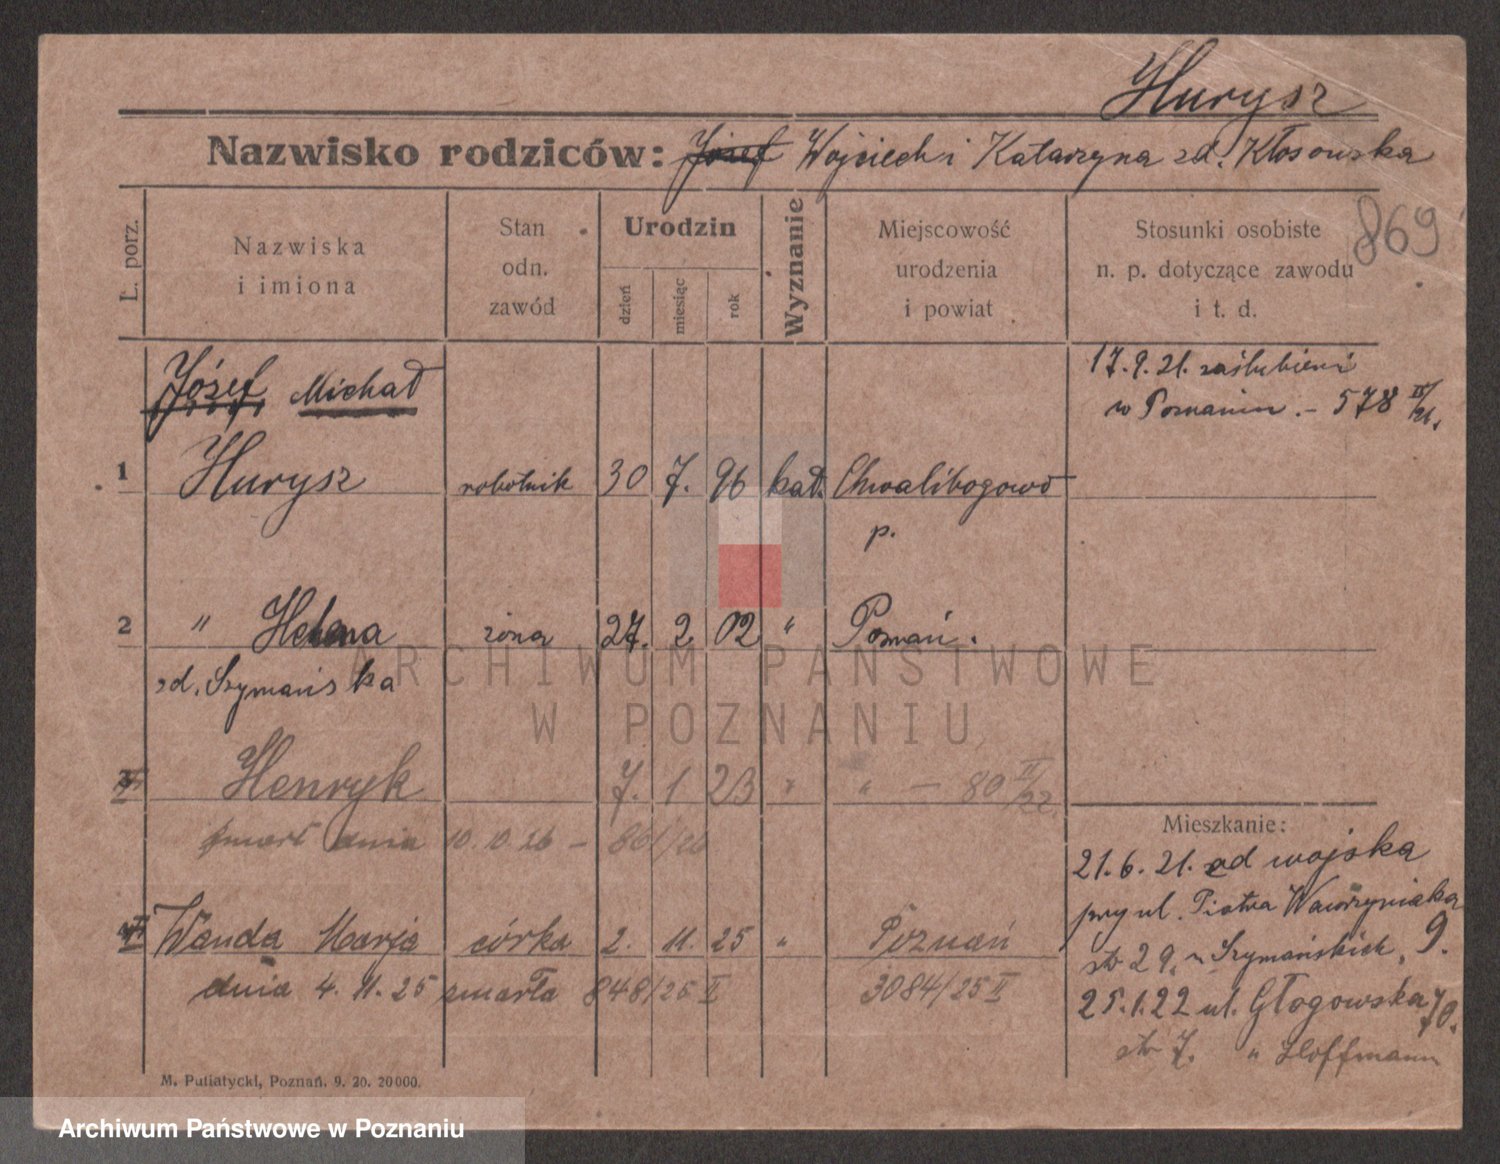 Hurysz
Nazwisko rodziców: Józef Wojciech i Katarzyna zd. Kłosowska
869
L. porz.
Nazwiska
i imiona
Stan
odn.
zawód
Urodzin
dzień
miesiąc
rok
Wyznanie
Miejscowość
urodzenia
i powiat
Stosunki osobiste
n. p. dotyczące zawodu
i t. d.
Józef Michał
17.9.21. zaślubieni
w Poznaniu. – 578 II/21.
1 Hurysz robotnik 30 7. 96 kat. Chwalibogowo
p.
2 " Helena żona 27. 2 02 " Poznań.
zd. Szymańska
ARCHIWUM PAŃSTWOWE
W POZNANIU
Henryk 7. 1 23 " " — 80 II/22.
zmarł dnia 10.10.26 – 861/26
Mieszkanie:
21.6.21. od wojska
przy ul. Piotra Wawrzyniaka
str 29. u Szymańskich, 9.
25.1.22 ul. Głogowska 70.
str 7. " Hoffmann
Wanda Marja córka 2. 11. 25 " Poznań
dnia 4.11.25 zmarła 848/25 II 3084/25 II
M. Putiatycki, Poznań. 9. 20. 20000.
Archiwum Państwowe w Poznaniu